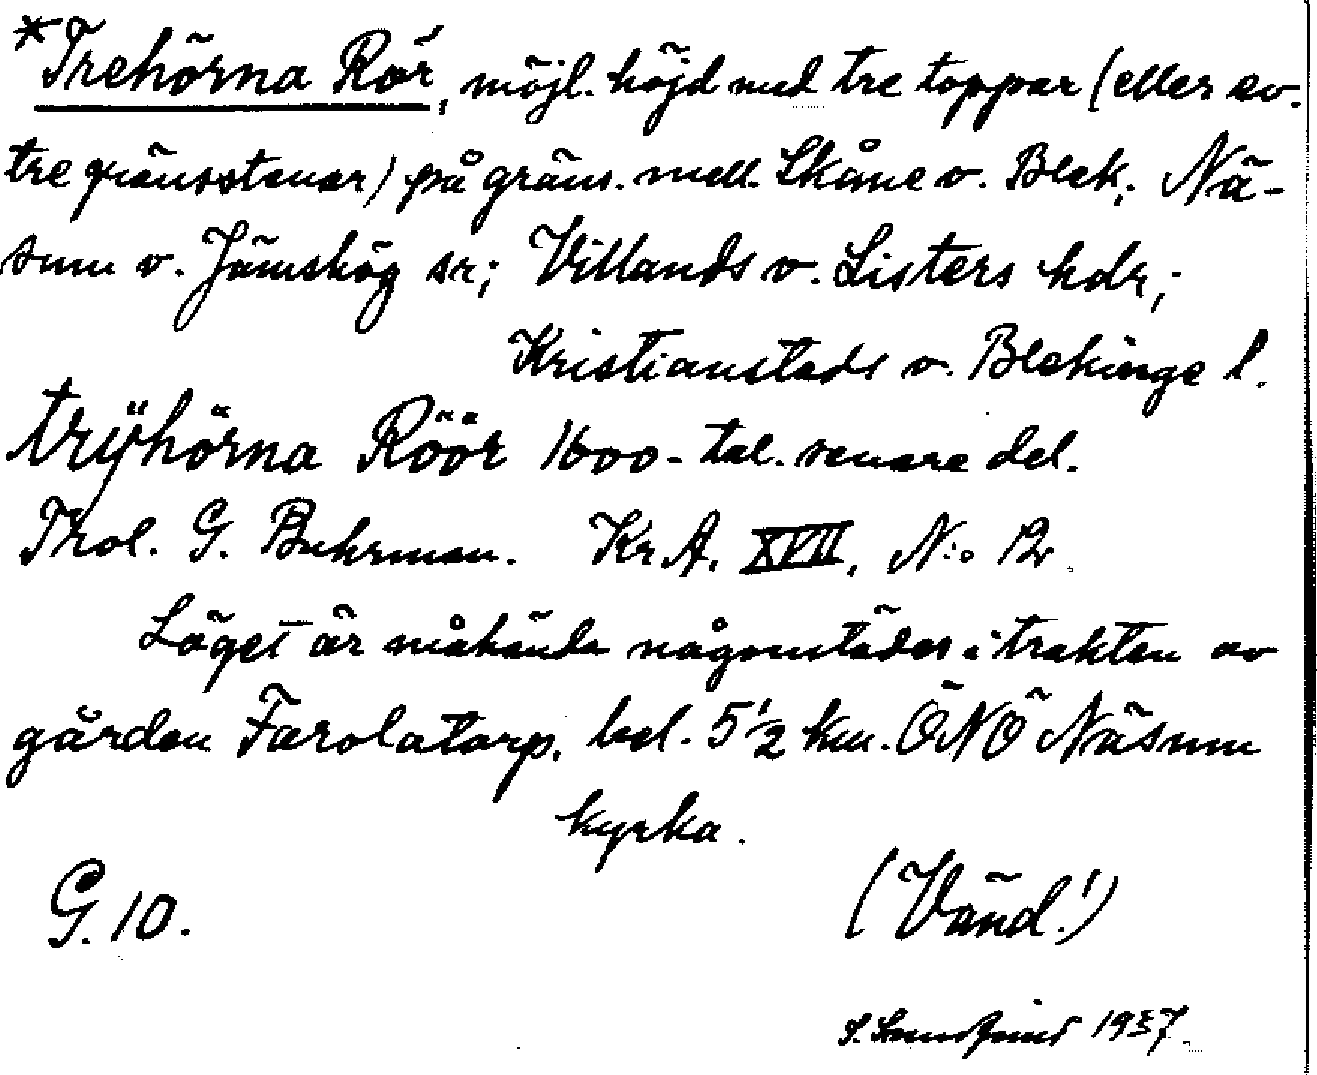 *Trehörna Rör, möjl. höjd med tre toppar (eller ev.
tre gränsstenar) på gräns. mell. Skåne o. Blek.; Nä-
sum o. Jämshög sr; Villands o. Listers hdr;
Kristianstads o. Blekinge l.
trÿhörna Röör 1600-tal. senare del.
Trol. G. Buhrman. Kr.A. XVII, N:o 12.
Läget är måhända någonstädes i trakten av
gården Farolatorp, bel. 5 1/2 km. ÖNÖ Näsum
kyrka.
G. 10. (Vänd!)
1937.